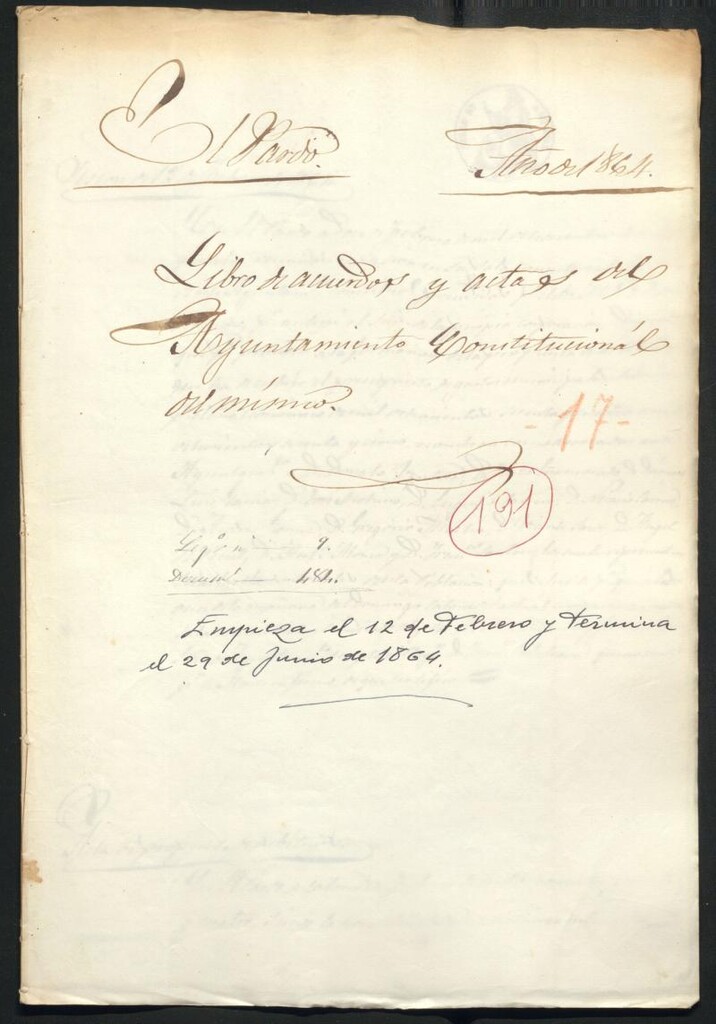 El Pardo.
Año de 1864.
Libro de acuerdos y actas del
Ayuntamiento Constitucional
del mismo.
-17-
191
Leg.º n.º 9.
Docum.to
Empieza el 12 de Febrero y termina
el 29 de Junio de 1864.